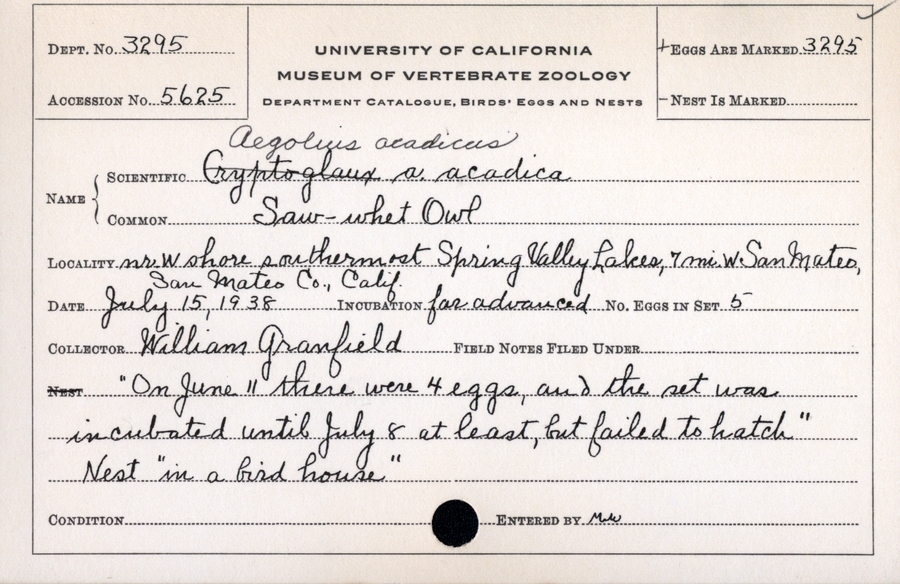 DEPT. No. 3295
UNIVERSITY OF CALIFORNIA
+ EGGS ARE MARKED 3295
MUSEUM OF VERTEBRATE ZOOLOGY
ACCESSION No. 5625
DEPARTMENT CATALOGUE, BIRDS' EGGS AND NESTS
- NEST IS MARKED
Aegolius acadicus
NAME
SCIENTIFIC Cryptoglaux a. acadica
COMMON Saw-whet Owl
LOCALITY nr. W shore southermost Spring Valley Lakes, 7 mi. W. San Mateo,
San Mateo Co., Calif.
DATE July 15, 1938 INCUBATION far advanced No. EGGS IN SET 5
COLLECTOR William Granfield FIELD NOTES FILED UNDER
NEST "On June 11 there were 4 eggs, and the set was
incubated until July 8 at least, but failed to hatch"
Nest "in a bird house"
CONDITION ENTERED BY